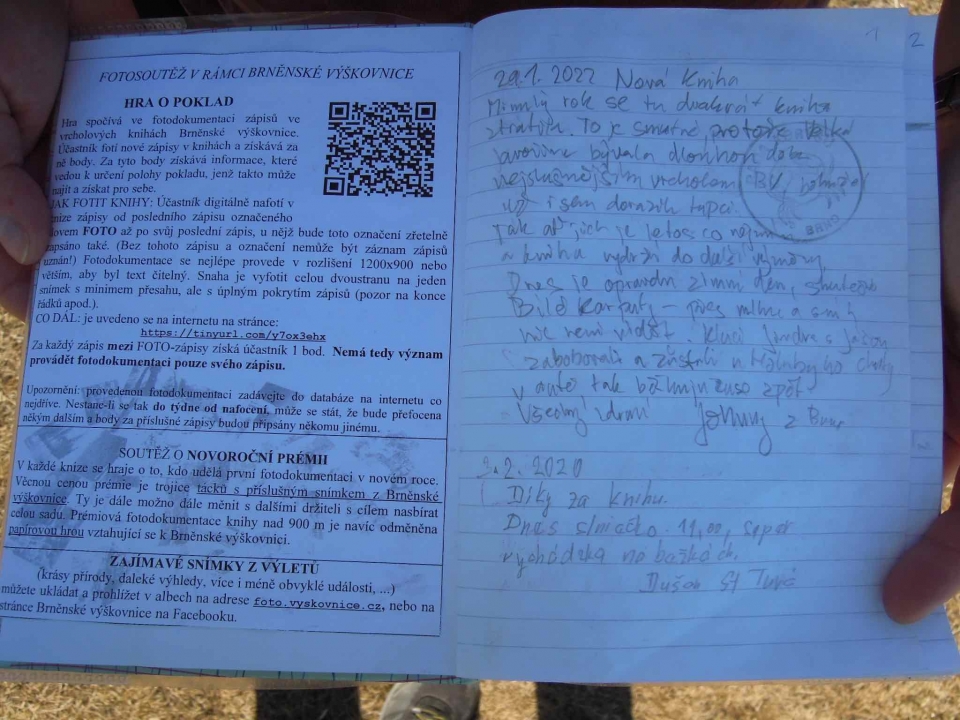 FOTOSOUTĚŽ V RÁMCI BRNĚNSKÉ VÝŠKOVNICE
HRA O POKLAD
Hra spočívá ve fotodokumentaci zápisů ve
vrcholových knihách Brněnské výškovnice.
Účastník fotí nové zápisy v knihách a získává za
ně body. Za tyto body získává informace, které
vedou k určení polohy pokladu, jenž takto může
najít a získat pro sebe.
JAK FOTIT KNIHY: Účastník digitálně nafotí v
knize zápisy od posledního zápisu označeného
slovem FOTO až po svůj poslední zápis, u nějž bude toto označení zřetelně
zapsáno také. (Bez tohoto zápisu a označení nemůže být záznam zápisů
uznán!) Fotodokumentace se nejlépe provede v rozlišení 1200x900 nebo
větším, aby byl text čitelný. Snaha je vyfotit celou dvoustranu na jeden
snímek s minimem přesahu, ale s úplným pokrytím zápisů (pozor na konce
řádků apod.).
CO DÁL: je uvedeno se na internetu na stránce:
https://tinyurl.com/y7ox3ehx
Za každý zápis mezi FOTO-zápisy získá účastník 1 bod. Nemá tedy význam
provádět fotodokumentaci pouze svého zápisu.
Upozornění: provedenou fotodokumentaci zadávejte do databáze na internetu co
nejdříve. Nestane-li se tak do týdne od nafocení, může se stát, že bude přefocena
někým dalším a body za příslušné zápisy budou připsány někomu jinému.
SOUTĚŽ O NOVOROČNÍ PRÉMII
V každé knize se hraje o to, kdo udělá první fotodokumentaci v novém roce.
Věcnou cenou prémie je trojice tácků s příslušným snímkem z Brněnské
výškovnice. Ty je dále možno dále měnit s dalšími držiteli s cílem nasbírat
celou sadu. Prémiová fotodokumentace knihy nad 900 m je navíc odměněna
papírovou hrou vztahující se k Brněnské výškovnici.
ZAJÍMAVÉ SNÍMKY Z VÝLETŮ
(krásy přírody, daleké výhledy, více i méně obvyklé události, ...)
můžete ukládat a prohlížet v albech na adrese foto.vyskovnice.cz, nebo na
stránce Brněnské výškovnice na Facebooku.
1 2
29.1.2022 Nová kniha
Minulý rok se tu dvakrát kniha
ztratila. To je smutné protože Velká
Javořina bývala dlouhou dobu
nejslušnějším vrcholem BV,
už i sem dorazili tupci.
Tak ať jich je letos co
a kniha vydrží do další výměny.
Dnes je opravdu zimní den,
Bílé Karpaty – přes mlhu a
nic není vidět. Kluci
a zůstali u Holubyho chaty
v autě tak běžím zpět
Všechny zdraví Johnny z Brna
3.2.2020
Díky za knihu.
Dnes slniačko. 11,00,
vychádzka na bežkách.
Dušan St Turá